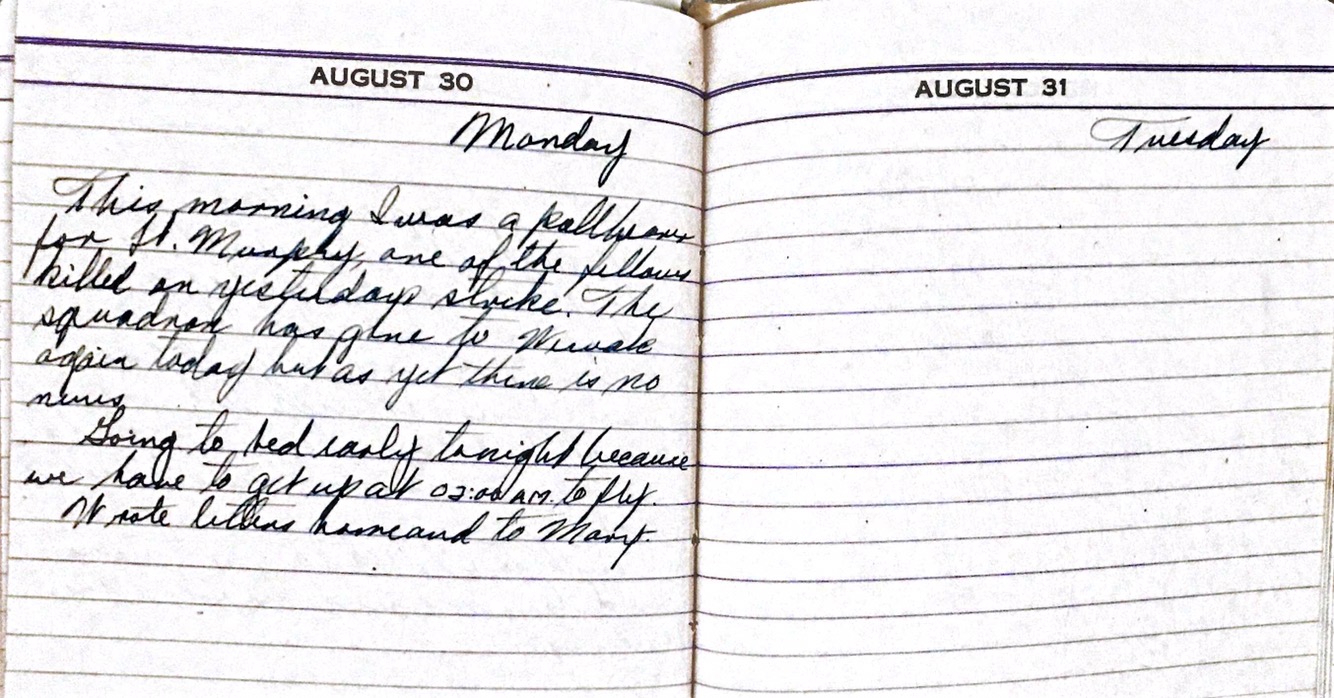 AUGUST 30
Monday
This morning I was a pallbearer
for Lt. Murphy, one of the fellows
killed on yesterdays strike. The
squadron has gone to Wewak
again today but as yet there is no
news.
Going to bed early tonight because
we have to get up at 03:00 AM. to fly.
Wrote letters home and to Mary.
AUGUST 31
Tuesday